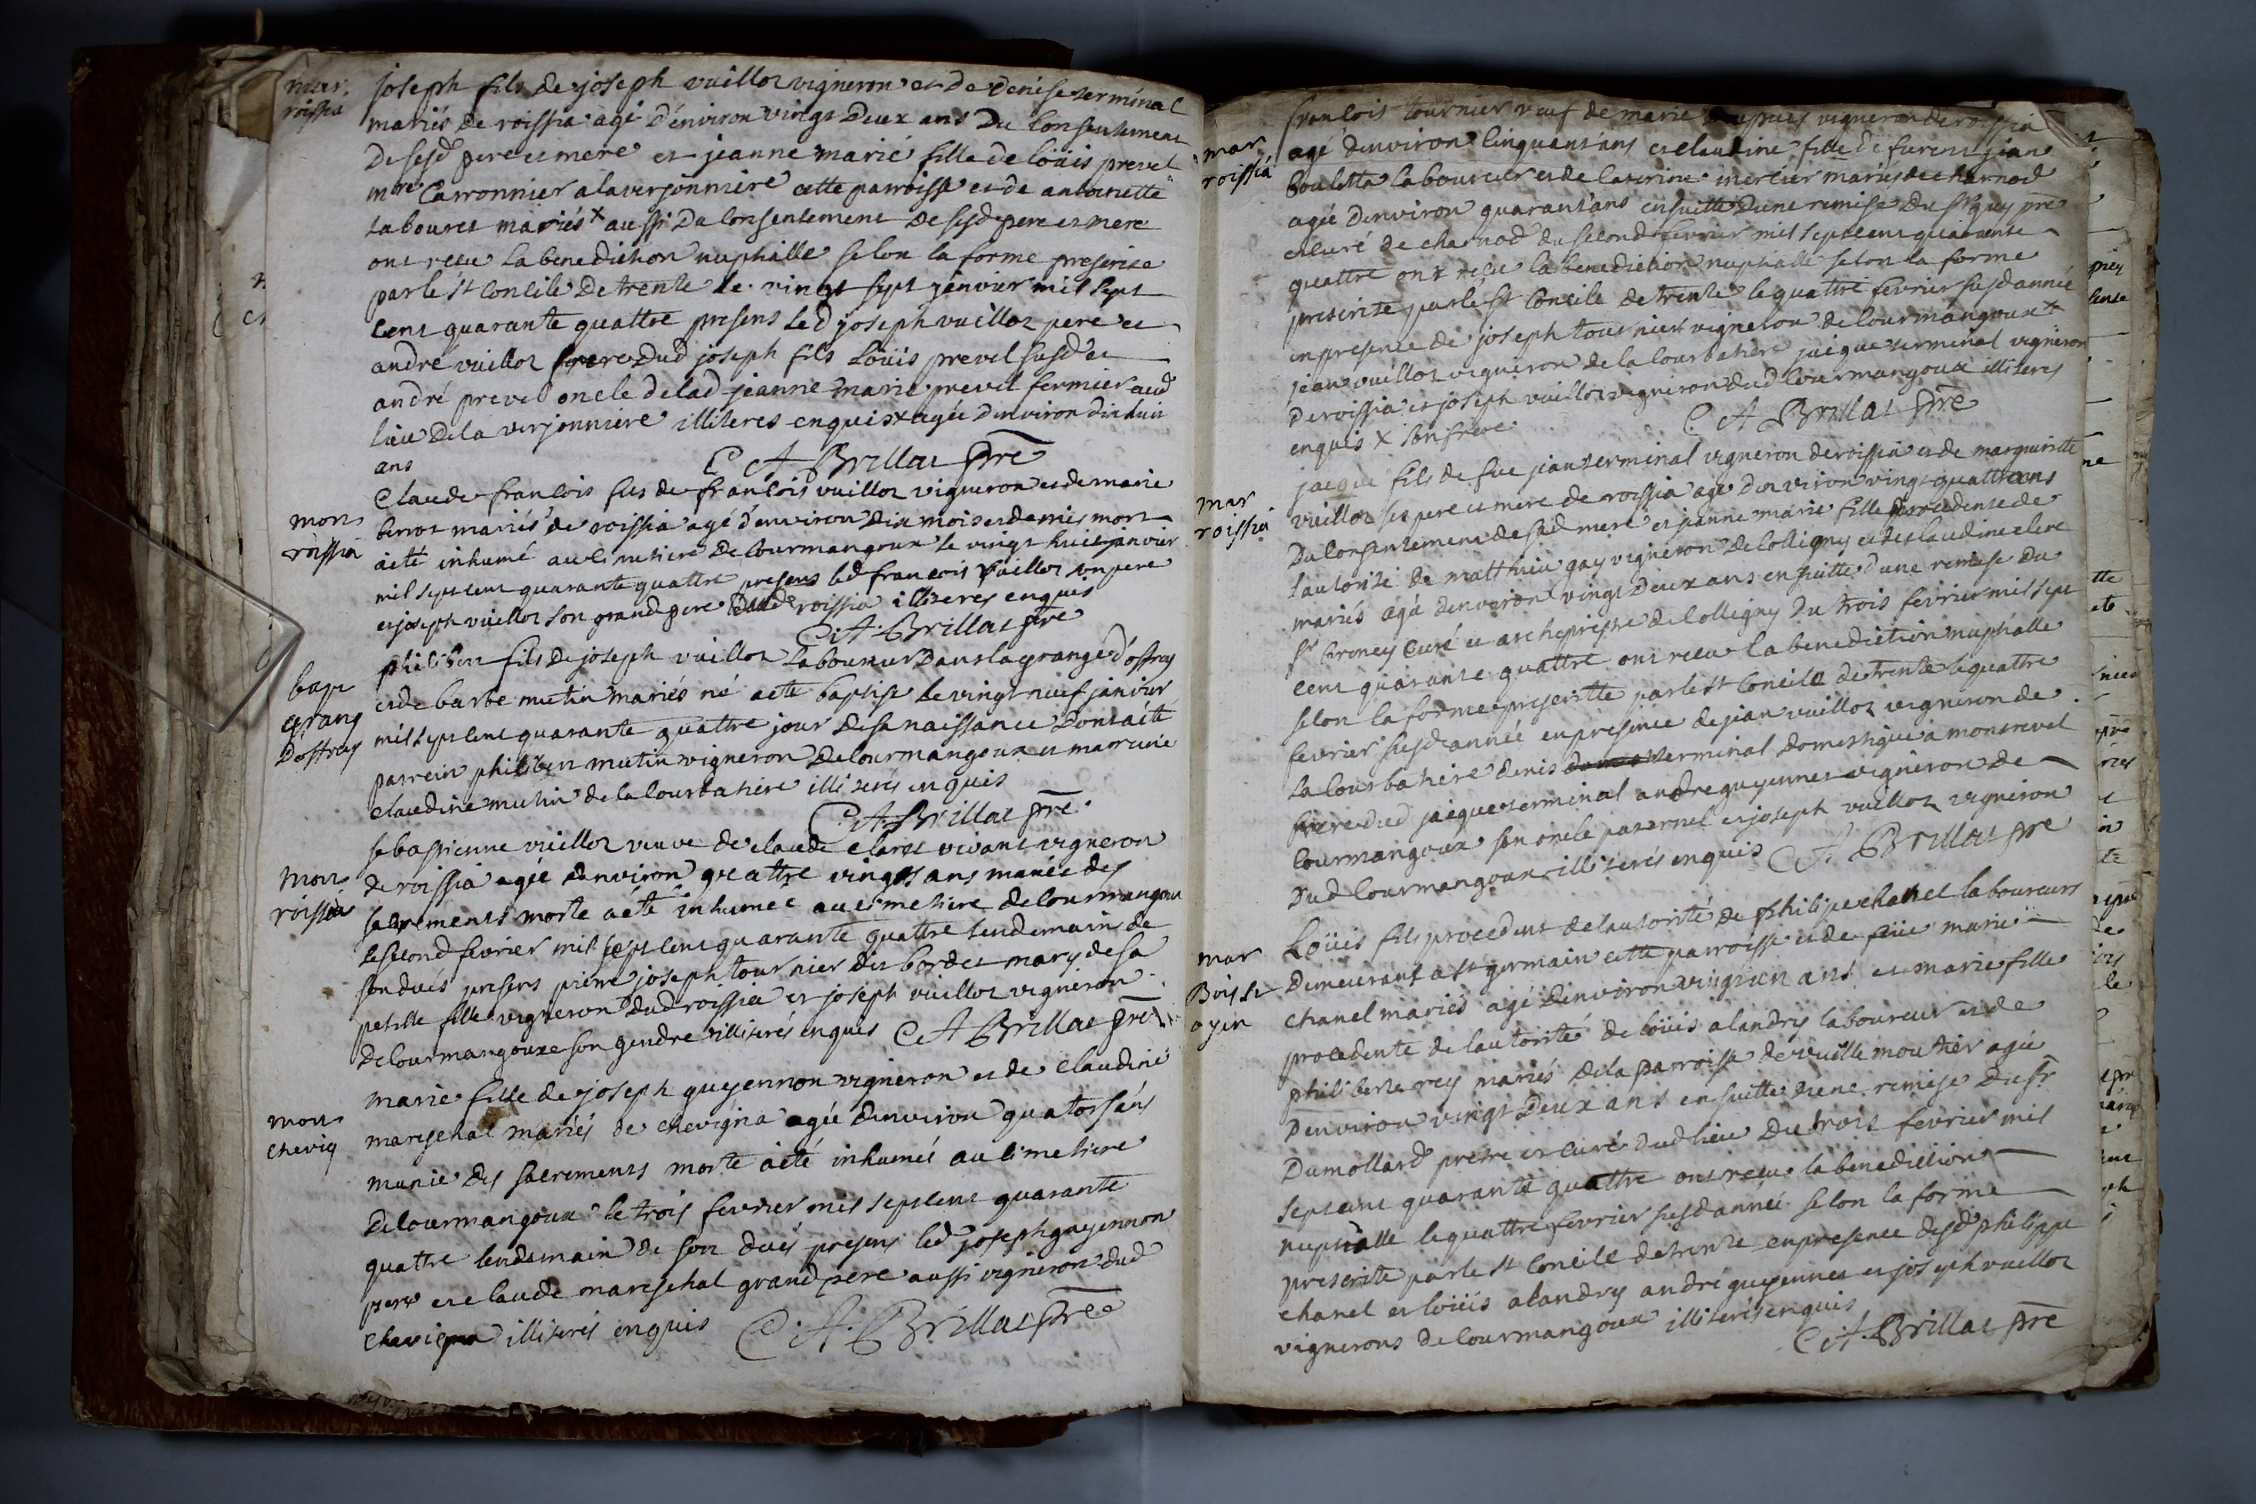 mar.
roissia
joseph fils de joseph vuilloz vigneron et de denise terminal
mariés de roissia agé d'environ vingt deux ans du consentement
de sesd pere et mere et jeanne marie fille de loüis prevel
mre Carronnier a laverjonniere cette parroisse et de antoinette
tabouret mariés x aussi du consentement de sesd pere et mere
ont receu la benediction nuphialle selon la forme prescrite
par le st Concile de trente le vingt sept jenvier mil sept
cent quarante quattre presens led joseph vuilloz pere et
andré vuilloz frere dud joseph fils Loüis prevel susd et
andré prevel oncle de lad jeanne marie prevel fermier aud
lieu de la verjonniere illiteres enquis x agée d'environ dix huit
ans
C A Brillat pre
mort
roissia
Claude françois fils de françois vuilloz vigneron et de marie
beroz mariés de roissia agé d'environ dix mois et demis mort
a eté inhumé au cimetiere de Courmangoux le vingt huit janvier
mil sept cent quarante quattre presens led françois vuilloz son pere
et joseph vuilloz son grand pere dud roissia illiteres enquis
C. A. Brillat pre
bapt
grang
d'offray
philibert fils de joseph vuilloz laboureur dans la grange d'offray
et de barbe mutin mariés né a eté baptisé le vingt neuf janvier
mil sept cent quarante quattre jour de sa naissance dont a eté
parrein philibert mutin vigneron de Courmangoux et marreine
claudine mutin de la Courbatiere illiterés enquis
C. A. Brillat pre
mort
roissia
sebastienne vuilloz veuve de claude claret vivant vigneron
de roissia agée d'environ quattre vingts ans munie des
sacrements morte a eté inhumée au cimetiere de Courmangoux
le second fevrier mil sept cent quarante quattre lendemain de
son decés presens pierre joseph tournier dit bordet mary de sa
petite fille vigneron dud roissia et joseph vuilloz vigneron
de Courmangoux son gendre illiterés enquis C A Brillat pre
mort
chevig
marie fille de joseph guyennon vigneron et de claudine
mareschal mariés de chevigna agée d'environ quatorsans
munie des sacrements morte a eté inhumée au cimetiere
de Courmangoux le trois fevrier mil sept cent quarante
quattre lendemain de son decés presens led joseph guyennon
pere et claude mareschal grand pere aussi vigneron dud
chevigna illiterés enquis C. A. Brillat pre
mar
roissia
françois tournier veuf de marie vigneron de roissia
agé d'environ cinquant'ans et claudine fille de furent jean
bouletta laboureur et de caterine mercier mariés de charnod
agée d'environ quarant'ans ensuitte d'une remise du sr guy pre
et curé de charnod du second fevrier mil sept cent quarante
quattre ont receu la benediction nuphialle selon la forme
prescrite par le st Concile de trente le quattre fevrier susd année
en presence de joseph tournier vigneron de Courmangoux x
jean vuilloz vigneron de la Courbatiere jacque terminal vigneron
de roissia et joseph vuilloz vigneron dud Courmangoux illiterés
enquis x son frere C A Brillat pre
mar
roissia
jacque fils de fue jean terminal vigneron de roissia et de margueritte
vuilloz ses pere et mere de roissia agé d'environ vingt quattre ans
du consentement de sad mere et jeanne marie fille procedente de
l'autorité de matthieu gay vigneron de Colligny et de claudine clere
mariés agée d'environ vingt deux ans ensuitte d'une remise du
sr Croney curé et archeprestre de Colligny du trois fevrier mil sept
cent quarante quattre ont receu la benediction nuphialle
selon la forme prescritte par le st Concile de trente le quattre
fevrier susd année en presence de jean vuilloz vigneron de
la Courbatiere denis terminal domestique a montrevel
frere dud jacque terminal andre guyennet vigneron de
Courmangoux son oncle paternel et joseph vuilloz vigneron
dud Courmangoux illiterés enquis C A Brillat pre
mar
Bois st
oyin
Loüis fils procedent de l'autorité de philipe chanel laboureurs
demeurant a st germain cette parroisse et de füe marie
chanel mariés agé d'environ vingt un ans et marie fille
procedente de l'autorité de loüis alandry laboureur et de
philiberte rey mariés de la parroisse de vieille moutier agée
d'environ vingt deux ans ensuitte d'une remise du sr
Dumollard prestre et curé dud lieu du trois fevrier mil
sept cent quarante quattre ont receu la benediction
nuptialle le quattre fevrier susd année selon la forme
prescrite par le st Concile de trente en presence desd philippe
chanel et loüis alandry andré guyennet et joseph vuilloz
vignerons de Courmangoux illiterés enquis
C. A. Brillat pre